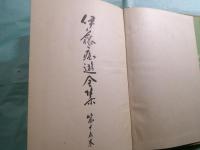 伊藤痴遊全集
第十五卷